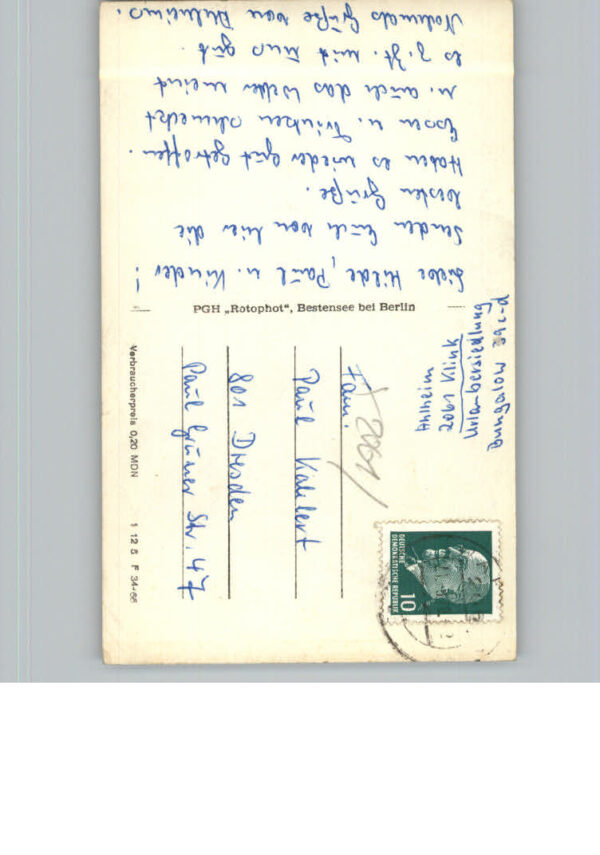 Liebe Hilde, Paul u. Kinder!
Senden Euch von hier die
besten Grüße.
Haben es wieder gut getroffen.
Essen u. Trinken schmeckt
u. auch das Wetter meint
es z. Zt. mit uns gut.
Nochmals Grüße von Ahlheims.
PGH „Rotophot“, Bestensee bei Berlin
Ahlheim
2061 Klink
Urlaubersiedlung
Bungalow 39c-d
Fam.
Paul Kahlert
801 Dresden
Paul Grüner Str. 47
Verbraucherpreis 0,20 MDN
1 12 5 F 34-66
DEUTSCHE
DEMOKRATISCHE REPUBLIK
10